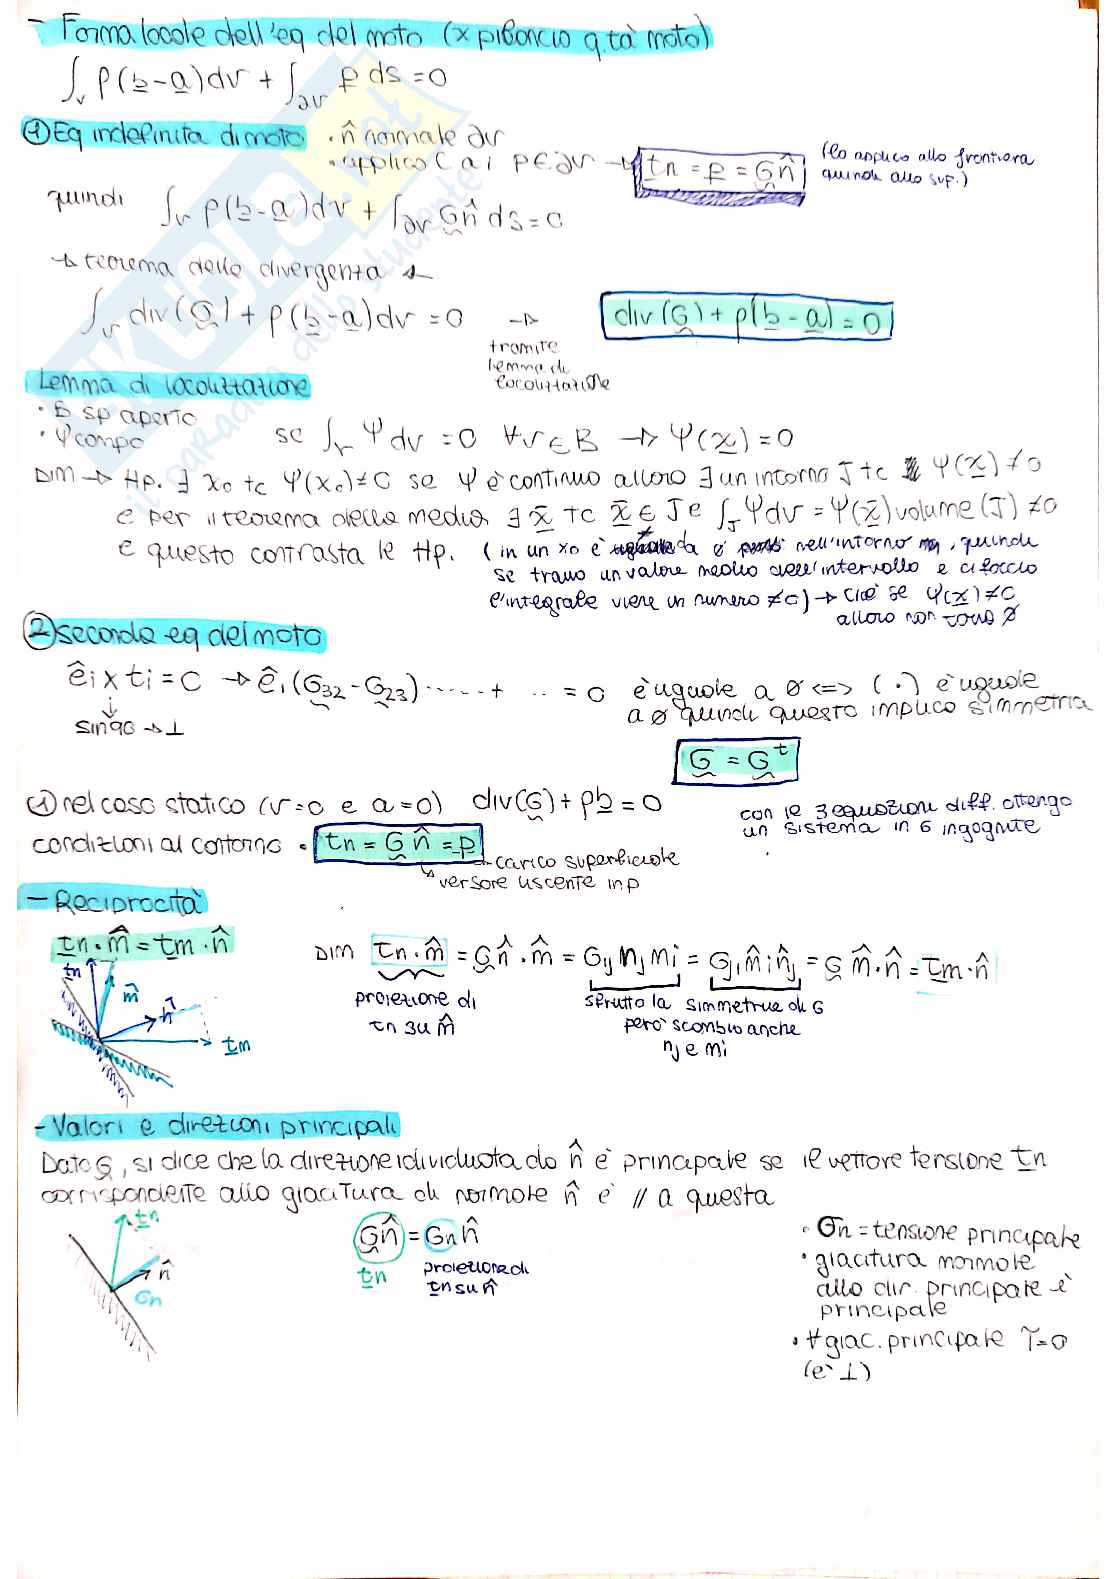 - Forma locale dell'eq del moto (x pibancio q.tà moto)
∫v ρ(b-a)dv + ∫∂v f ds = 0
① Eq indefinita di moto · n̂ normale ∂v
· applico C a i p∈∂v → tn = f = σn̂ (lo applico alla frontiera
quindi alla sup.)
quindi ∫v ρ(b-a)dv + ∫∂v σn̂ ds = 0
→ teorema della divergenza
∫v div(σ) + ρ(b-a)dv = 0 → div(σ) + ρ(b-a) = 0
tramite
lemma di
localizzazione
Lemma di localizzazione
· B sp aperto
· ψ campo se ∫v ψ dv = 0 ∀v∈B → ψ(x) = 0
DIM → Hp. ∃ x₀ tc ψ(x₀)≠0 se ψ è continuo allora ∃ un intorno J tc ψ(x) ≠ 0
e per il teorema della media ∃ x̄ tc x̄ ∈ J e ∫J ψdv = ψ(x̄) volume(J) ≠ 0
e questo contrasta le Hp. (in un x₀ è da ø nell'intorno, quindi
se trovo un valore medio dell'intervallo e ci faccio
l'integrale viene un numero ≠0) → cioè se ψ(x)≠0
allora non torna ø
② seconda eq del moto
êi x ti = 0 → ê₁(σ32 - σ23) ...... + .. = 0 è uguale a ø <=> (·) è uguale
a ø quindi questo implica simmetria
sin90 → ⊥
σ = σᵗ
① nel caso statico (v=0 e a=0) div(σ) + ρb = 0 con le 3 equazioni diff. ottengo
un sistema in 6 incognite
condizioni al contorno · tn = σn̂ = p
carico superficiale
versore uscente in p
- Reciprocità
tn · m̂ = tm · n̂ DIM tn · m̂ = σn̂ · m̂ = σij nj mi = σji m̂i n̂j = σ m̂ · n̂ = tm · n̂
tn m̂ n̂ tm
proiezione di
tn su m̂
sfrutto la simmetria di σ
però scambio anche
nj e mi
- Valori e direzioni principali
Dato σ, si dice che la direzione individuata da n̂ è principale se il vettore tensione tn
corrispondente alla giacitura di normale n̂ è // a questa
tn n̂ σn
σn̂ = σn n̂
tn proiezione di
tn su n̂
· σn = tensione principale
· giacitura normale
alla dir. principale è
principale
· ∀ giac. principale τ=0
(è ⊥)